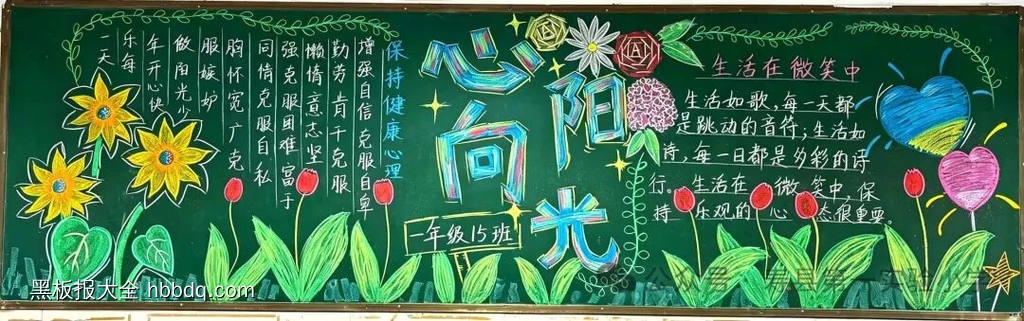 心向阳光
保持健康心理
增强自信克服自卑
勤劳肯干克服
懒惰意志坚
强克服困难富于
同情克服自私
胸怀宽广克
服嫉妒
做阳光少
年开心快
乐每
一天
一年级15班
生活在微笑中
生活如歌,每一天都
是跳动的音符;生活如
诗,每一日都是多彩的诗
行。生活在微笑中,保
持乐观的心态很重要。
黑板报大全 hbbdq.com
公众号 县第一实验小学